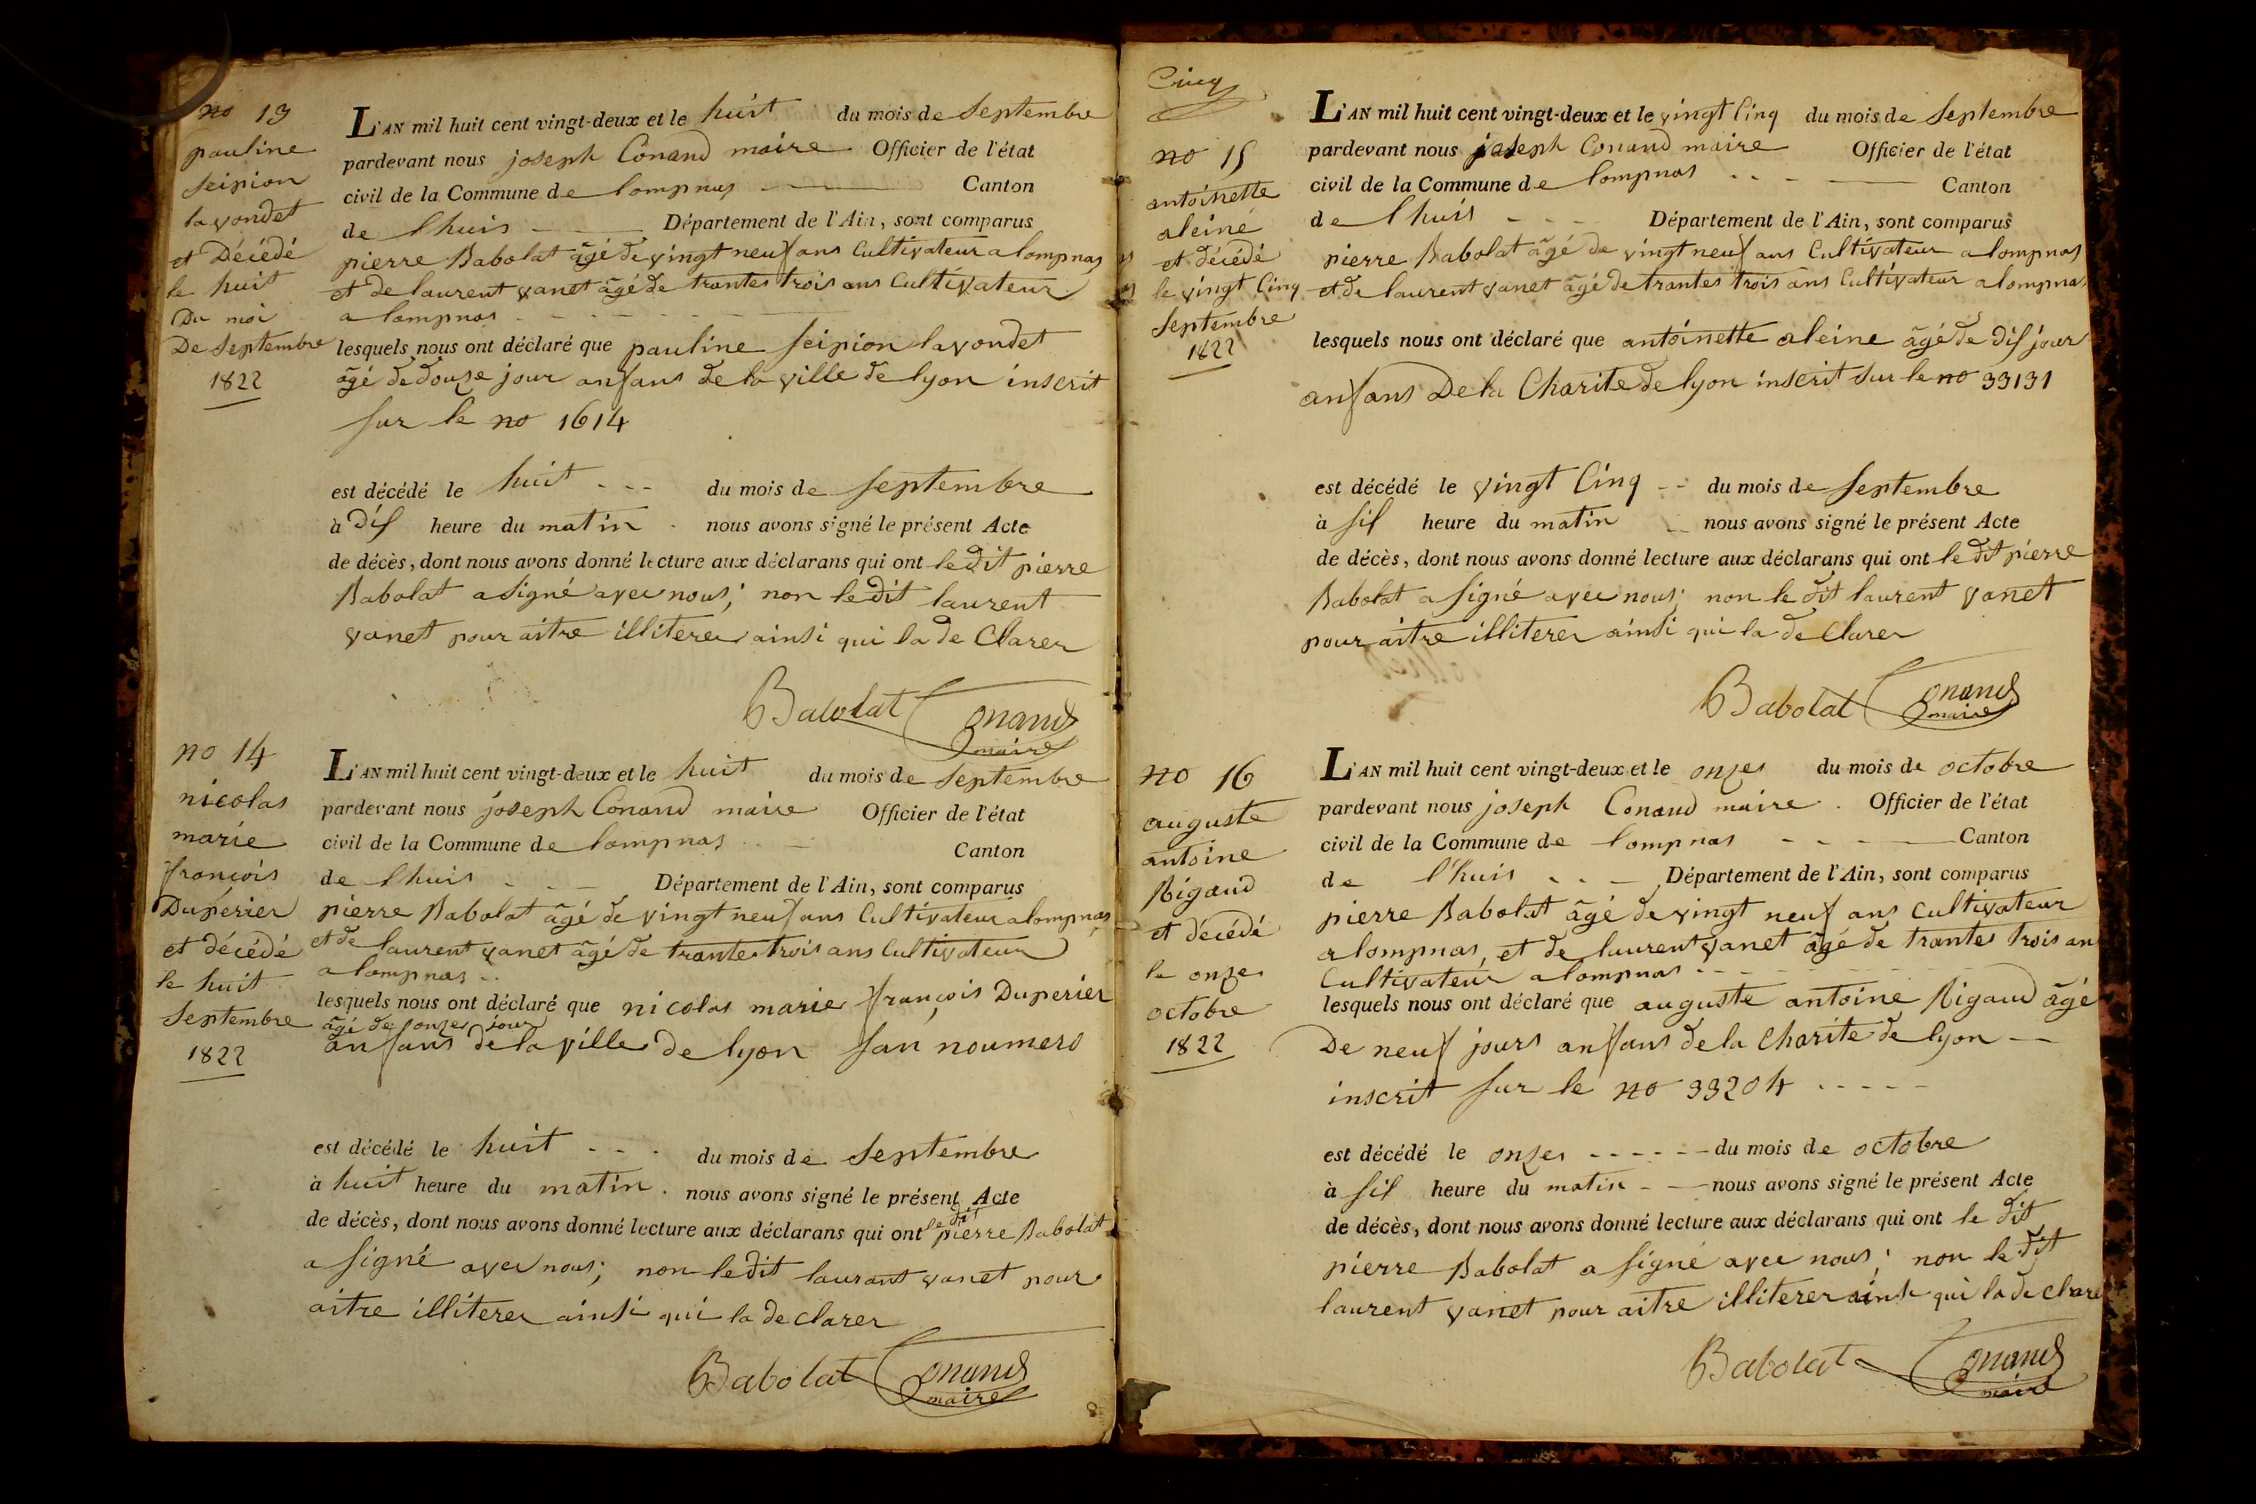 no 13
pauline
seipion
lavondet
et Décédé
le huit
Du moi
De septembre
1822
L'AN mil huit cent vingt-deux et le huit du mois de septembre
pardevant nous joseph Conand maire Officier de l'état
civil de la Commune de lompnas Canton
de lhuis Département de l'Ain, sont comparus
pierre Babolat âgé de vingt neuf ans Cultivateur a lompnas
et de laurent vanet âgé de trantes trois ans Cultivateur
a lompnas
lesquels nous ont déclaré que pauline seipion lavondet
âgé de douze jour anfans de la ville de lyon inscrit
sur le no 1614
est décédé le huit du mois de septembre
à dis heure du matin nous avons signé le présent Acte
de décès, dont nous avons donné lecture aux déclarans qui ont le dit pierre
Babolat a signé avec nous; non le dit laurent
vanet pour aitre illiterer ainsi qui la de Clarer
Babolat Conand
maire
no 14
nicolas
marie
françois
Dupérier
et décédé
le huit
septembre
1822
L'AN mil huit cent vingt-deux et le huit du mois de septembre
pardevant nous joseph Conand maire Officier de l'état
civil de la Commune de lompnas Canton
de lhuis Département de l'Ain, sont comparus
pierre Babolat âgé de vingt neuf ans Cultivateur a lompnas
et de laurent vanet âgé de trantes trois ans Cultivateur
a lompnas
lesquels nous ont déclaré que nicolas marie françois Duperier
âgé de onzes jour
anfans de la ville de lyon san noumero
est décédé le huit du mois de septembre
à huit heure du matin. nous avons signé le présent Acte
de décès, dont nous avons donné lecture aux déclarans qui ont le dit pierre Babolat
a signé avec nous; non le dit laurant vanet pour
aitre illiterer ainsi qui la declarer
Babolat Conand
maire
Cinq
no 15
antoinette
aleine
et décédé
le vingt Cinq
septembre
1822
L'AN mil huit cent vingt-deux et le vingt Cinq du mois de septembre
pardevant nous joseph Conand maire Officier de l'état
civil de la Commune de lompnas Canton
de lhuis Département de l'Ain, sont comparus
pierre Babolat âgé de vingt neuf ans Cultivateur a lompnas
et de laurent vanet âgé de trantes trois ans Cultivateur a lompnas
lesquels nous ont déclaré que antoinette aleine âgé de dis jour
anfans De la Charite de lyon inscrit sur le no 33131
est décédé le vingt Cinq du mois de septembre
à sis heure du matin nous avons signé le présent Acte
de décès, dont nous avons donné lecture aux déclarans qui ont le dit pierre
Babolat a signé avec nous; non le dit laurent vanet
pour aitre illiterer ainsi qui la de Clarer
Babolat Conand
maire
no 16
auguste
antoine
Rigaud
et décédé
le onzes
octobre
1822
L'AN mil huit cent vingt-deux et le onzes du mois de octobre
pardevant nous joseph Conand maire. Officier de l'état
civil de la Commune de lompnas Canton
de l'huis Département de l'Ain, sont comparus
pierre Babolat âgé de vingt neuf ans Cultivateur
a lompnas, et de laurent vanet âgé de trantes trois an
Cultivateur a lompnas
lesquels nous ont déclaré que auguste antoine Rigaud âgé
De neuf jours anfans de la Charite de lyon
inscrit sur le no 33204
est décédé le onzes du mois de octobre
à sis heure du matin nous avons signé le présent Acte
de décès, dont nous avons donné lecture aux déclarans qui ont le dit
pierre Babolat a signé avec nous; non le dit
laurent vanet pour aitre illiterer ainsi qui la de clare
Babolat Conand
maire